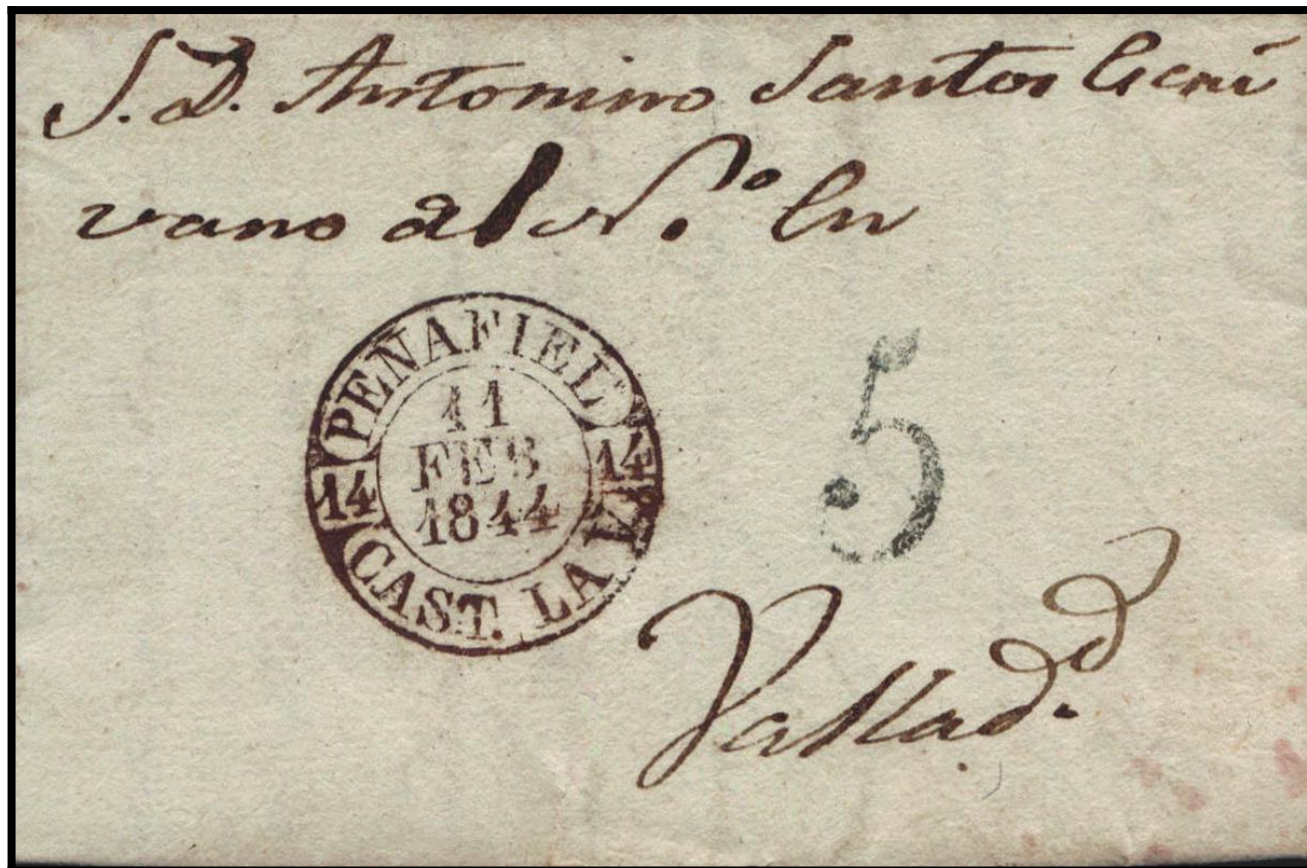 S. D. Antonino Santos Escri
vano del N.º En
PEÑAFIEL
11
FEB
1844
14
14
CAST. LA V.
5
Vallad.d